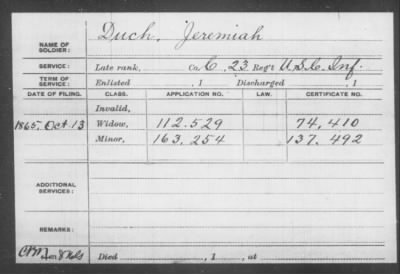 NAME OF SOLDIER: Duch, Jeremiah
SERVICE: Late rank, Co. C, 23 Reg't U.S.C. Inf.
TERM OF SERVICE: Enlisted , 1 Discharged , 1
DATE OF FILING. CLASS. APPLICATION NO. LAW. CERTIFICATE NO.
Invalid,
1865, Oct. 13 Widow, 112.529 74,410
Minor, 163,254 137,492
ADDITIONAL SERVICES:
REMARKS:
Died , 1 , at